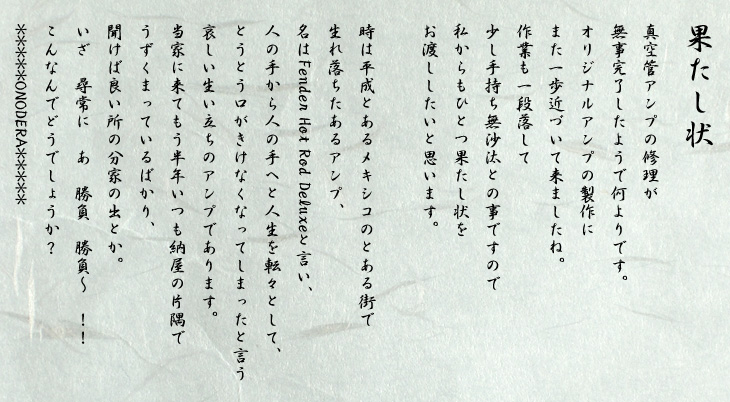 果たし状
真空管アンプの修理が
無事完了したようで何よりです。
オリジナルアンプの製作に
また一歩近づいて来ましたね。
作業も一段落して
少し手持ち無沙汰との事ですので
私からもひとつ果たし状を
お渡ししたいと思います。
時は平成とあるメキシコのとある街で
生れ落ちたあるアンプ、
名はFender Hot Rod Deluxeと言い、
人の手から人の手へと人生を転々として、
とうとう口がきけなくなってしまったと言う
哀しい生い立ちのアンプであります。
当家に来てもう半年いつも納屋の片隅で
うずくまっているばかり、
聞けば良い所の分家の出とか。
いざ 尋常に あ 勝負 勝負～ !!
こんなんでどうでしょうか?
*****ONODERA*****